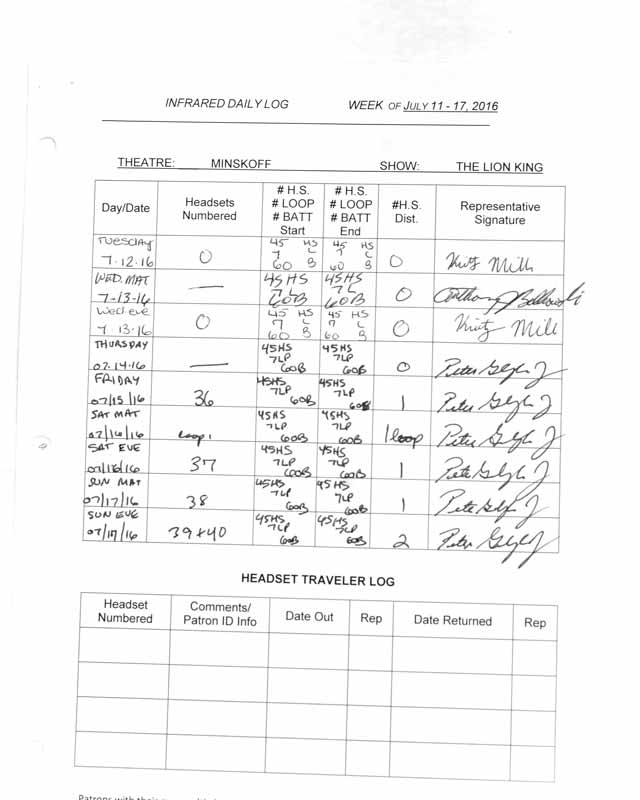 INFRARED DAILY LOG WEEK OF JULY 11 - 17, 2016
THEATRE: MINSKOFF SHOW: THE LION KING
Day/Date Headsets Numbered # H.S. # LOOP # BATT Start # H.S. # LOOP # BATT End #H.S. Dist. Representative Signature
TUESDAY 7-12-16 0 45 HS 7 L 60 B 45 HS 7 L 60 B 0 Mill
WED. MAT 7-13-16 — 45HS 7L 60B 45HS 7L 60B 0 Anthony
Wed eve 7-13-16 0 45 HS 7 L 60 B 45 HS 7 L 60 B 0 Mill
THURSDAY 07-14-16 — 45HS 7LP 60B 45HS 7LP 60B 0 Peter
FRIDAY 07/15/16 36 45HS 7LP 60B 45HS 7LP 60B 1 Peter
SAT MAT 07/16/16 Loop 1 45HS 7LP 60B 45HS 7LP 60B 1 loop Peter
SAT EVE 07/16/16 37 45HS 7LP 60B 45HS 7LP 60B 1 Peter
SUN MAT 07/17/16 38 45HS 7LP 60B 45HS 7LP 60B 1 Peter
SUN EVE 07/17/16 39+40 45HS 7LP 60B 45HS 7LP 60B 2 Peter
HEADSET TRAVELER LOG
Headset Numbered Comments/ Patron ID Info Date Out Rep Date Returned Rep